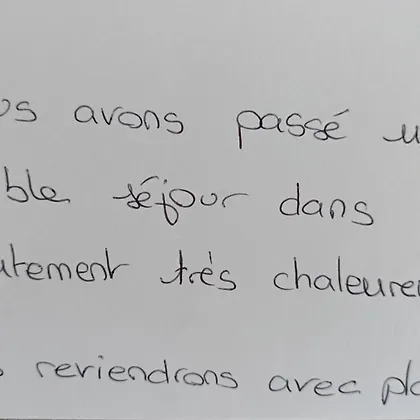 os avons passé u
ble séjour dans
utement très chaleure
s reviendrons avec pla